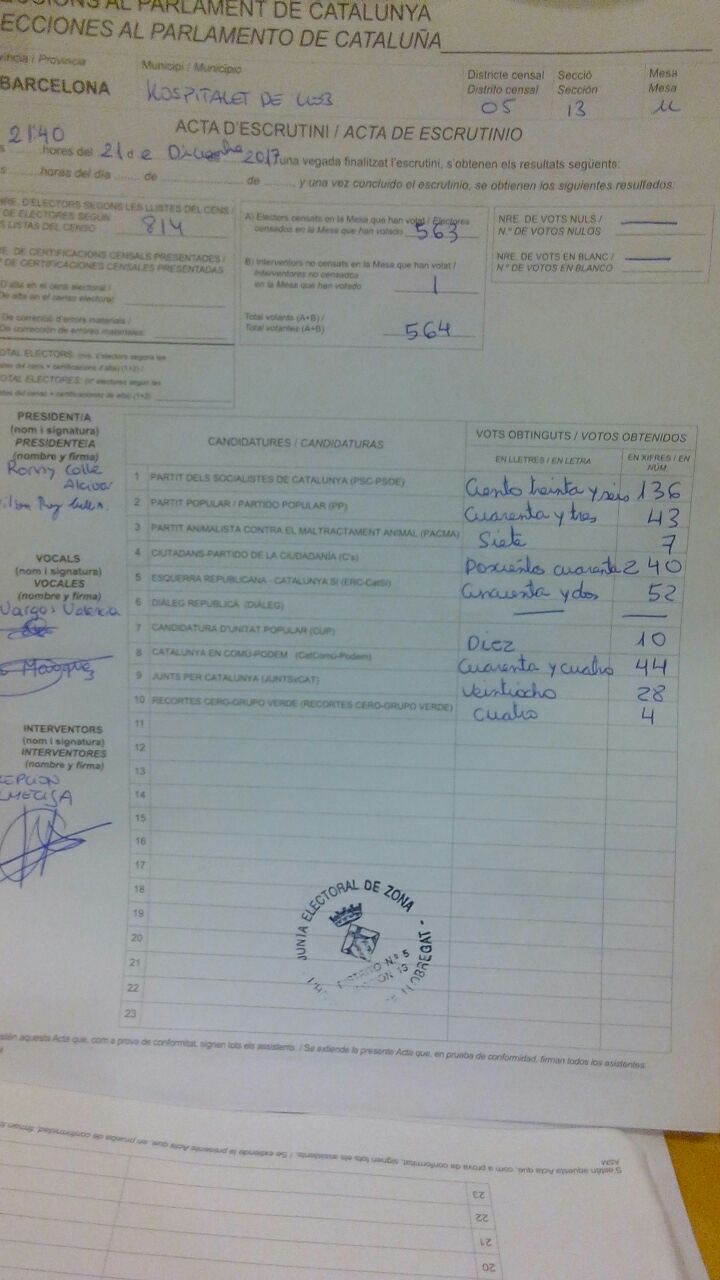 ECCIONS AL PARLAMENT DE CATALUNYA
ECCIONES AL PARLAMENTO DE CATALUÑA
víncia / Provincia
BARCELONA
Municipi / Municipio
HOSPITALET DE LLOB
Districte censal
Distrito censal
05
Secció
Sección
13
Mesa
Mesa
U
ACTA D'ESCRUTINI / ACTA DE ESCRUTINIO
21:40
hores del 21 de Diciembre 2017 una vegada finalitzat l'escrutini, s'obtenen els resultats següents:
horas del día de de , y una vez concluido el escrutinio, se obtienen los siguientes resultados:
NRE. D'ELECTORS SEGONS LES LLISTES DEL CENS /
DE ELECTORES SEGÚN
LISTAS DEL CENSO
814
E. DE CERTIFICACIONS CENSALS PRESENTADES /
DE CERTIFICACIONES CENSALES PRESENTADAS
D'alta en el cens electoral /
De alta en el censo electoral:
De correcció d'errors materials /
De corrección de errores materiales:
OTAL ELECTORS:
OTAL ELECTORES:
A) Electors censats en la Mesa que han votat / Electores
censados en la Mesa que han votado
563
B) Interventors no censats en la Mesa que han votat /
Interventores no censados
en la Mesa que han votado
1
Total votants (A+B) /
Total votantes (A+B)
564
NRE. DE VOTS NULS /
N.º DE VOTOS NULOS
NRE. DE VOTS EN BLANC /
N.º DE VOTOS EN BLANCO
PRESIDENT/A
(nom i signatura)
PRESIDENTE/A
(nombre y firma)
Ronny Colle
VOCALS
(nom i signatura)
VOCALES
(nombre y firma)
Vargas Valencia
INTERVENTORS
(nom i signatura)
INTERVENTORES
(nombre y firma)
CANDIDATURES / CANDIDATURAS
VOTS OBTINGUTS / VOTOS OBTENIDOS
EN LLETRES / EN LETRA
EN XIFRES / EN
NÚM
1 PARTIT DELS SOCIALISTES DE CATALUNYA (PSC-PSOE) Ciento treinta y seis 136
2 PARTIT POPULAR / PARTIDO POPULAR (PP) Cuarenta y tres 43
3 PARTIT ANIMALISTA CONTRA EL MALTRACTAMENT ANIMAL (PACMA) Siete 7
4 CIUTADANS-PARTIDO DE LA CIUDADANÍA (C's) Doscientos cuarenta 240
5 ESQUERRA REPUBLICANA - CATALUNYA SÍ (ERC-CatSí) Cincuenta y dos 52
6 DIÀLEG REPUBLICÀ (DIÀLEG)
7 CANDIDATURA D'UNITAT POPULAR (CUP) Diez 10
8 CATALUNYA EN COMÚ-PODEM (CatComú-Podem) Cuarenta y cuatro 44
9 JUNTS PER CATALUNYA (JUNTSxCAT) Veintiocho 28
10 RECORTES CERO-GRUPO VERDE (RECORTES CERO-GRUPO VERDE) Cuatro 4
11
12
13
14
15
16
17
18
19
20
21
22
23
JUNTA ELECTORAL DE ZONA
DISTRITO N.º 5
SECCIÓN 13
estén aquesta Acta que, com a prova de conformitat, signen tots els assistents. / Se extiende la presente Acta que, en prueba de conformidad, firman todos los asistentes.
S'estén aquesta Acta que, com a prova de conformitat, signen tots els assistents. / Se extiende la presente Acta que, en prueba de conformidad, firman
23
22
21
20